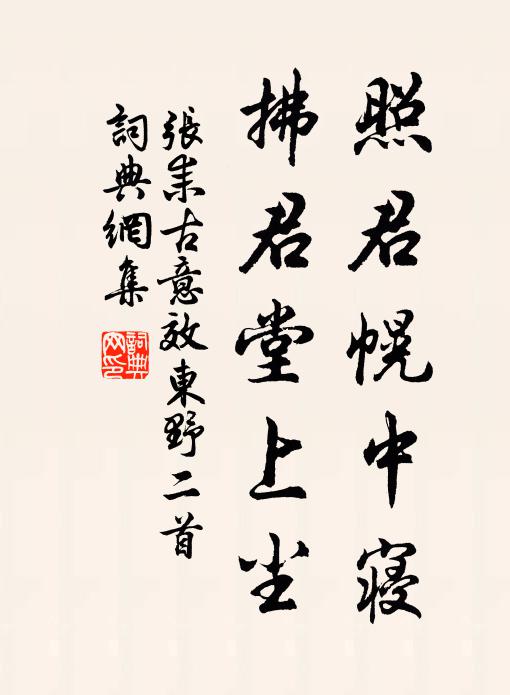 照君幌中寢
拂君堂上坐
張耒古意效東野二首
詞典網集
詞典网印